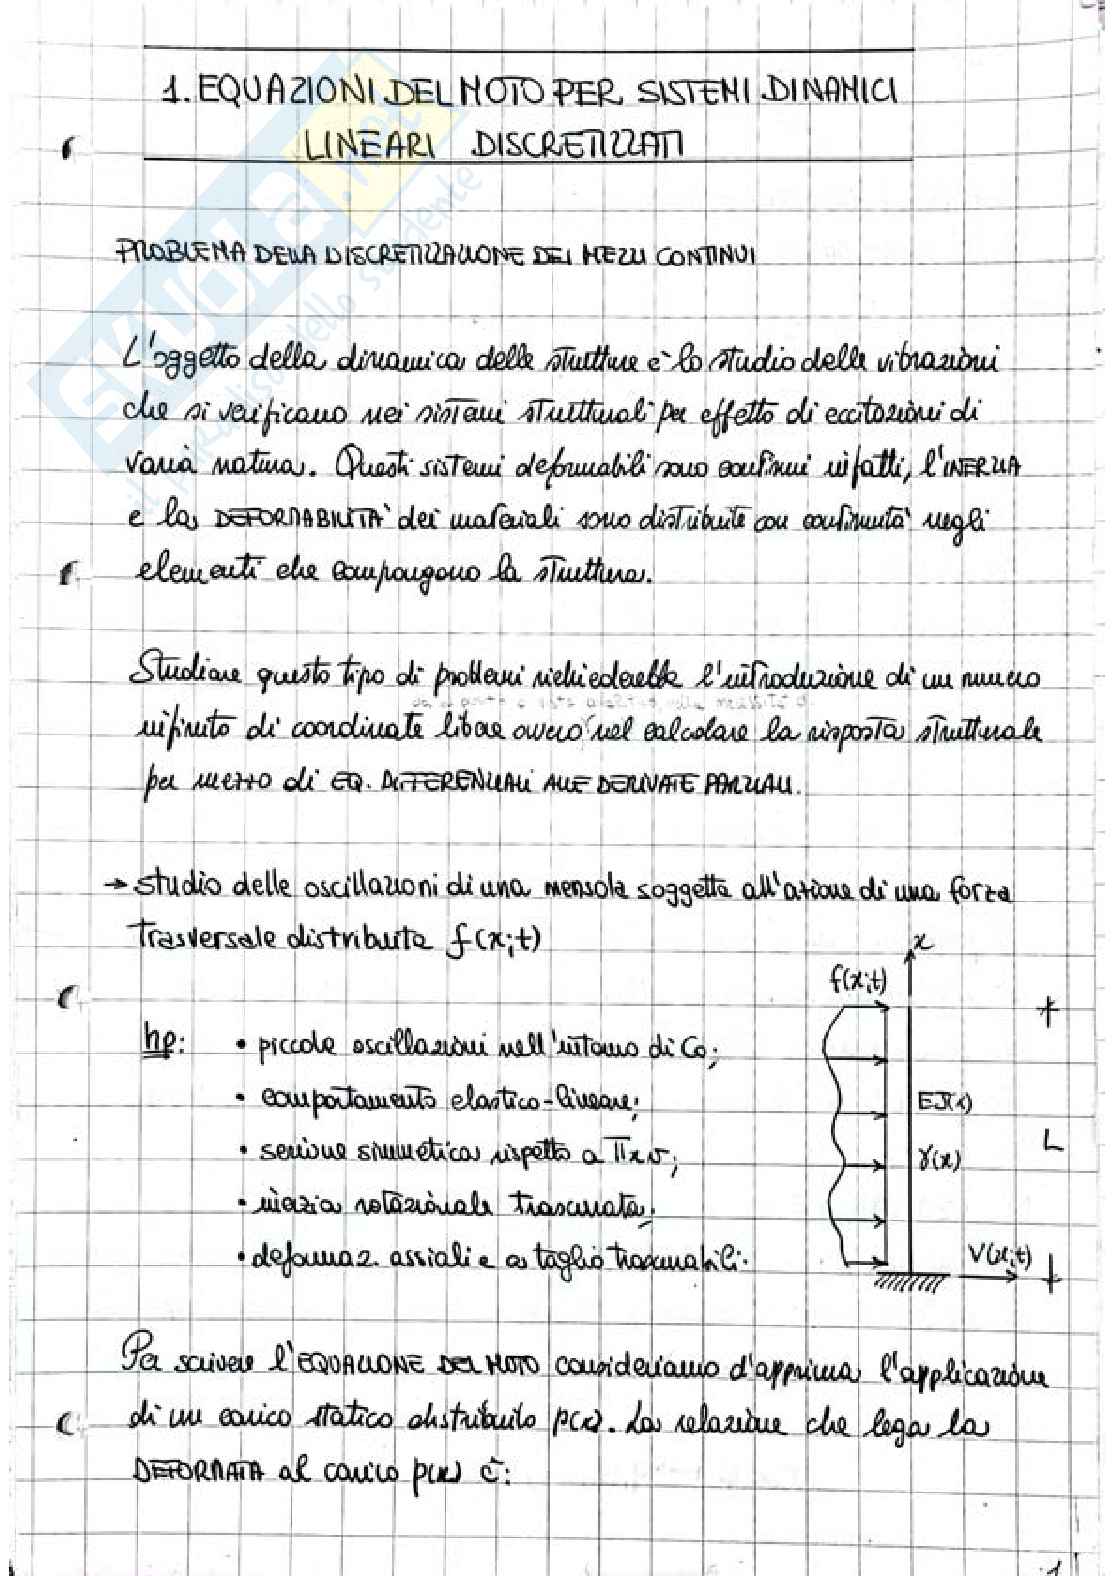 1. EQUAZIONI DEL MOTO PER SISTEMI DINAMICI
LINEARI DISCRETIZZATI
PROBLEMA DELLA DISCRETIZZAZIONE DEI MEZZI CONTINUI
L'oggetto della dinamica delle strutture è lo studio delle vibrazioni
che si verificano nei sistemi strutturali per effetto di eccitazioni di
varia natura. Questi sistemi deformabili sono continui infatti, l'INERZIA
e la DEFORMABILITA' dei materiali sono distribuite con continuità negli
elementi che compongono la struttura.
Studiare questo tipo di problemi richiederebbe l'introduzione di un numero
infinito di coordinate libere ovvero nel calcolare la risposta strutturale
per mezzo di EQ. DIFFERENZIALI ALLE DERIVATE PARZIALI.
→ studio delle oscillazioni di una mensola soggetta all'azione di una forza
trasversale distribuita f(x;t)
hp:
• piccole oscillazioni nell'intorno di C₀;
• comportamento elastico-lineare;
• sezione simmetrica rispetto a πxv;
• inerzia rotazionale trascurata;
• deformaz. assiali e a taglio trascurabili.
x
f(x;t)
EJ(x)
L
γ(x)
V(x;t)
Per scrivere l'EQUAZIONE DEL MOTO consideriamo d'apprima l'applicazione
di un carico statico distribuito p(x). La relazione che lega la
DEFORMATA al carico p(x) è:
1
SKUOLA.net
il paradiso dello studente